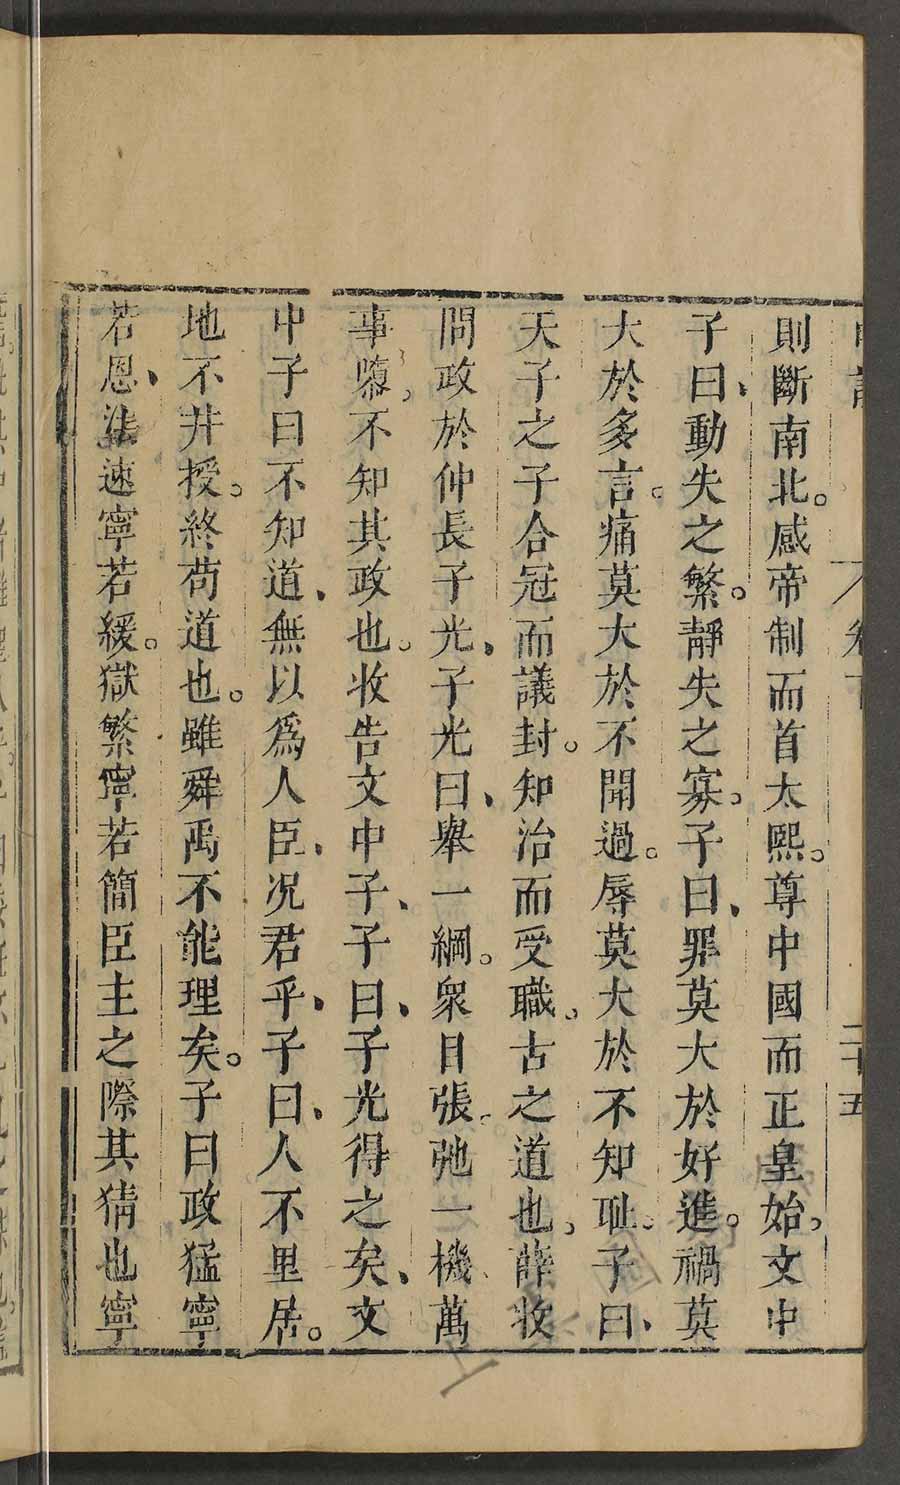 則斷南北。感帝制而首太熙。尊中國而正皇始，文中
子曰、動失之繁。靜失之寡。子曰、罪莫大於好進。禍莫
大於多言。痛莫大於不聞過。辱莫大於不知耻。子曰、
天子之子合冠而議封。知治而受職。古之道也，薛收
問政於仲長子光、子光曰、舉一綱。衆目張。弛一機、萬
事隳，不知其政也。收告文中子、子曰、子光得之矣、文
中子曰不知道、無以爲人臣、况君乎、子曰、人不里居。
地不井授。終苟道也。雖舜禹不能理矣。子曰政猛寧
若恩、法速寧若緩。獄繁寧若簡臣主之際其猜也寧
卷下
二十五